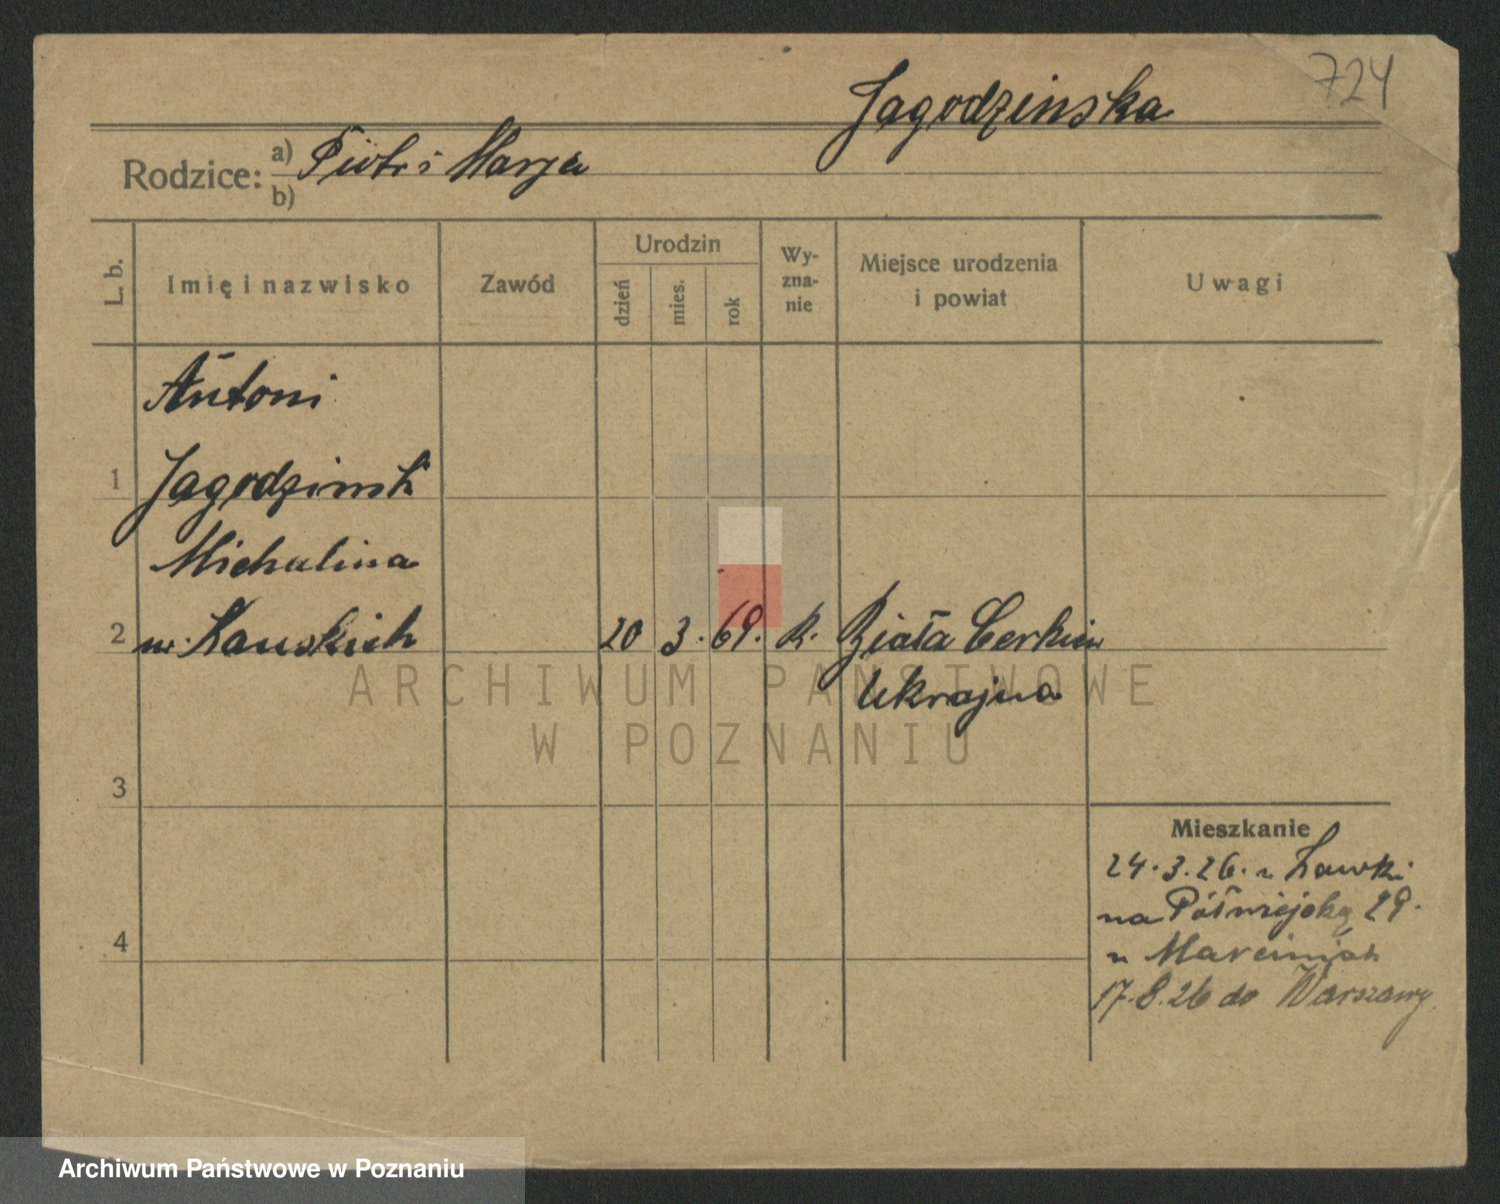 724
Jagodzinska
Rodzice: a) Piotr i Marja
b)
L. b.
Imię i nazwisko
Zawód
Urodzin
dzień
mies.
rok
Wy-
zna-
nie
Miejsce urodzenia
i powiat
Uwagi
Antoni
1 Jagodzinski
Michalina
2 Kauskich 20 3. 69. R. Biała Cerkiew
Ukrajna
3
4
Mieszkanie
24.3.26. z Ławki
na Półwiejską 29.
u Marciniak
17.8.26 do Warszawy.
ARCHIWUM PAŃSTWOWE
W POZNANIU
Archiwum Państwowe w Poznaniu